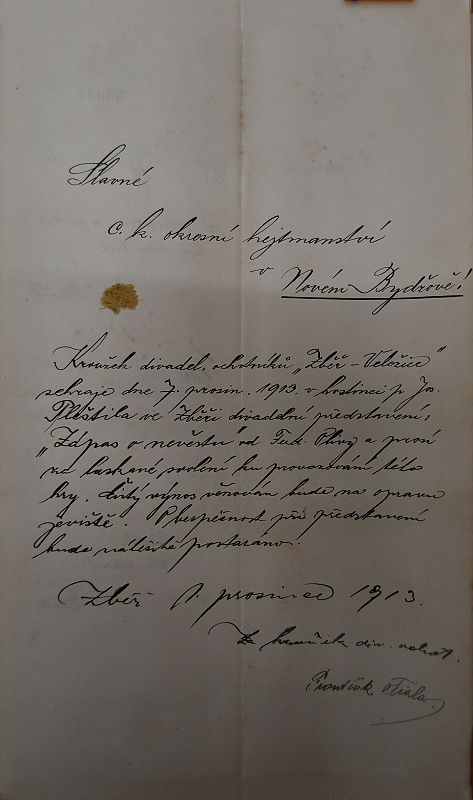 Slavné
c. k. okresní hejtmanství
v
Novém Bydžově!
Kroužek divadel. ochotníků „Zběř - Veležice"
sehraje dne 7. prosin. 1913. v hostinci p. Jos.
Plštila ve Zběři divadelní představení;
„Zápas o nevěstu" od Ferd. Olivy a prosí
za laskavé svolení ku provozování této
hry. Čistý výnos věnován bude na opravu
jeviště. O bezpečnost při představení
bude náležitě postaráno.
Zběř 1. prosince 1913.
Za kroužek div. ochot.
František Fiala.